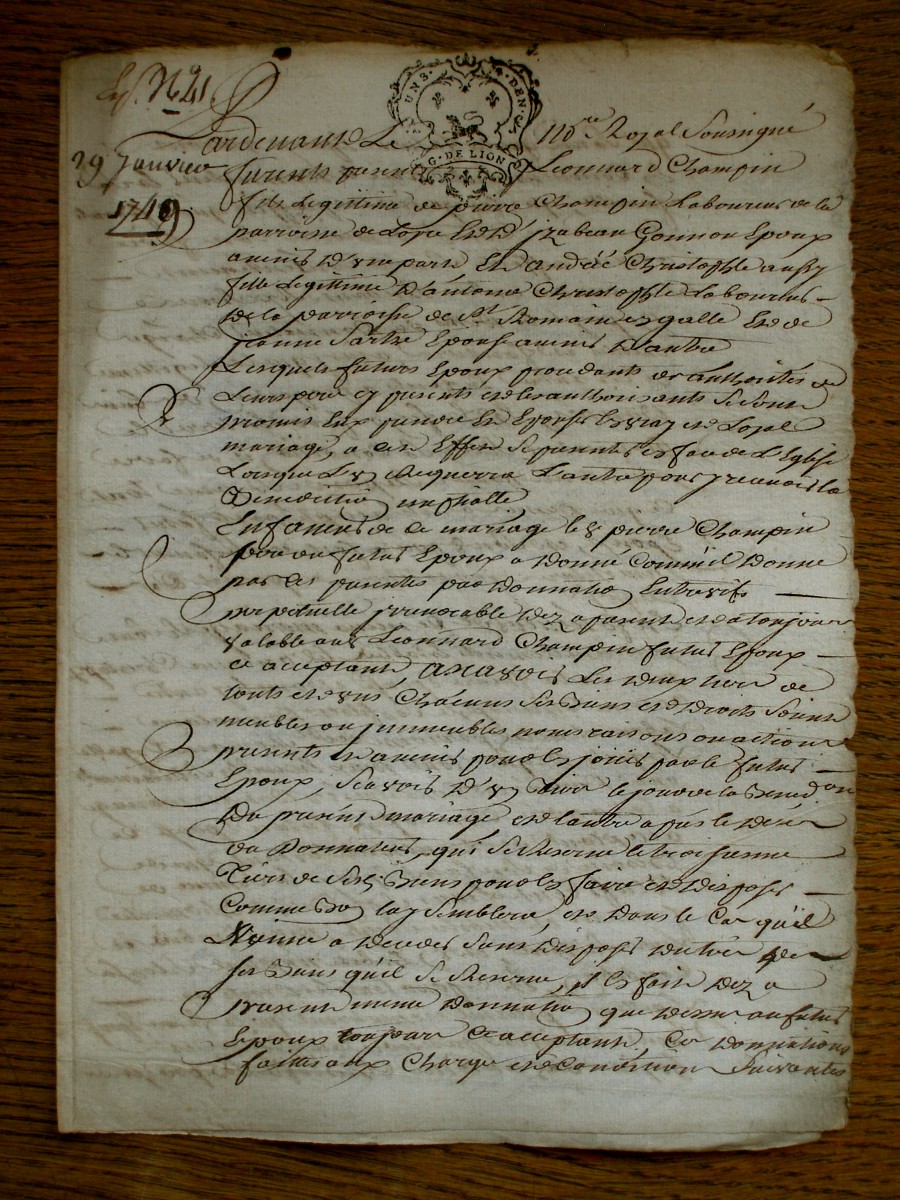 N° 41
29 Janvier
1749
UN S. 4. DEN.
G. DE LION
Pardevant Le no.re Royal Soussigné
furent presents Leonnard Champin
fils Legittime de pierre Champin Laboureur de la
parroisse de Loyre Et d'yzabeau Gonnon Epoux
avenir d'une part Et andrée Christophle aussy
fille Legittime d'antoine Christophle Laboureur
de la parroisse de St Romain en galle Et de
jeanne Sartre Epouse avenir d'autre
Lesquels futurs Epoux procedants de authorités de
Leurs pere cy presents et les authorisants se sont
promis Eux prendre En Epouse Et vray et Loyal
mariage, a cet Effet se presenter en face de L'Eglise
Lorsque L'un Requerra L'autre pour y recevoir la
Benediction nuptialle
En faveur de ce mariage le s pierre Champin
pere du futur Epoux a donné Comme il donne
par ces presentes par donnation Entrevifs
perpetuelle jrrevocable dez apresent et a toujour
valable aud Leonnard Champin futur Epoux
ce acceptant, ascavoir Les deux tiers de
touts et uns Chacuns ses Biens et droits soient
meubles ou jmmeubles noms raisons ou actions
presents et avenir pour en jouir par le futur
Epoux, Scavoir d'un tiers le jour de la Bened.on
du present mariage et l'autre apres le deces
du donnateur, qui se Reserve le troisieme
Tiers de ses Biens pour en faire et disposer
Comme Bon luy semblera et dans le Cas qu'il
Vienne a deceder sans disposer du tiers de
ses Biens qu'il se Reserve, jl en fait dez a
present meme donnation que dessus au futur
Epoux toujour ce acceptant, Ces donnations
faittes aux Charges et Conditions suivantes